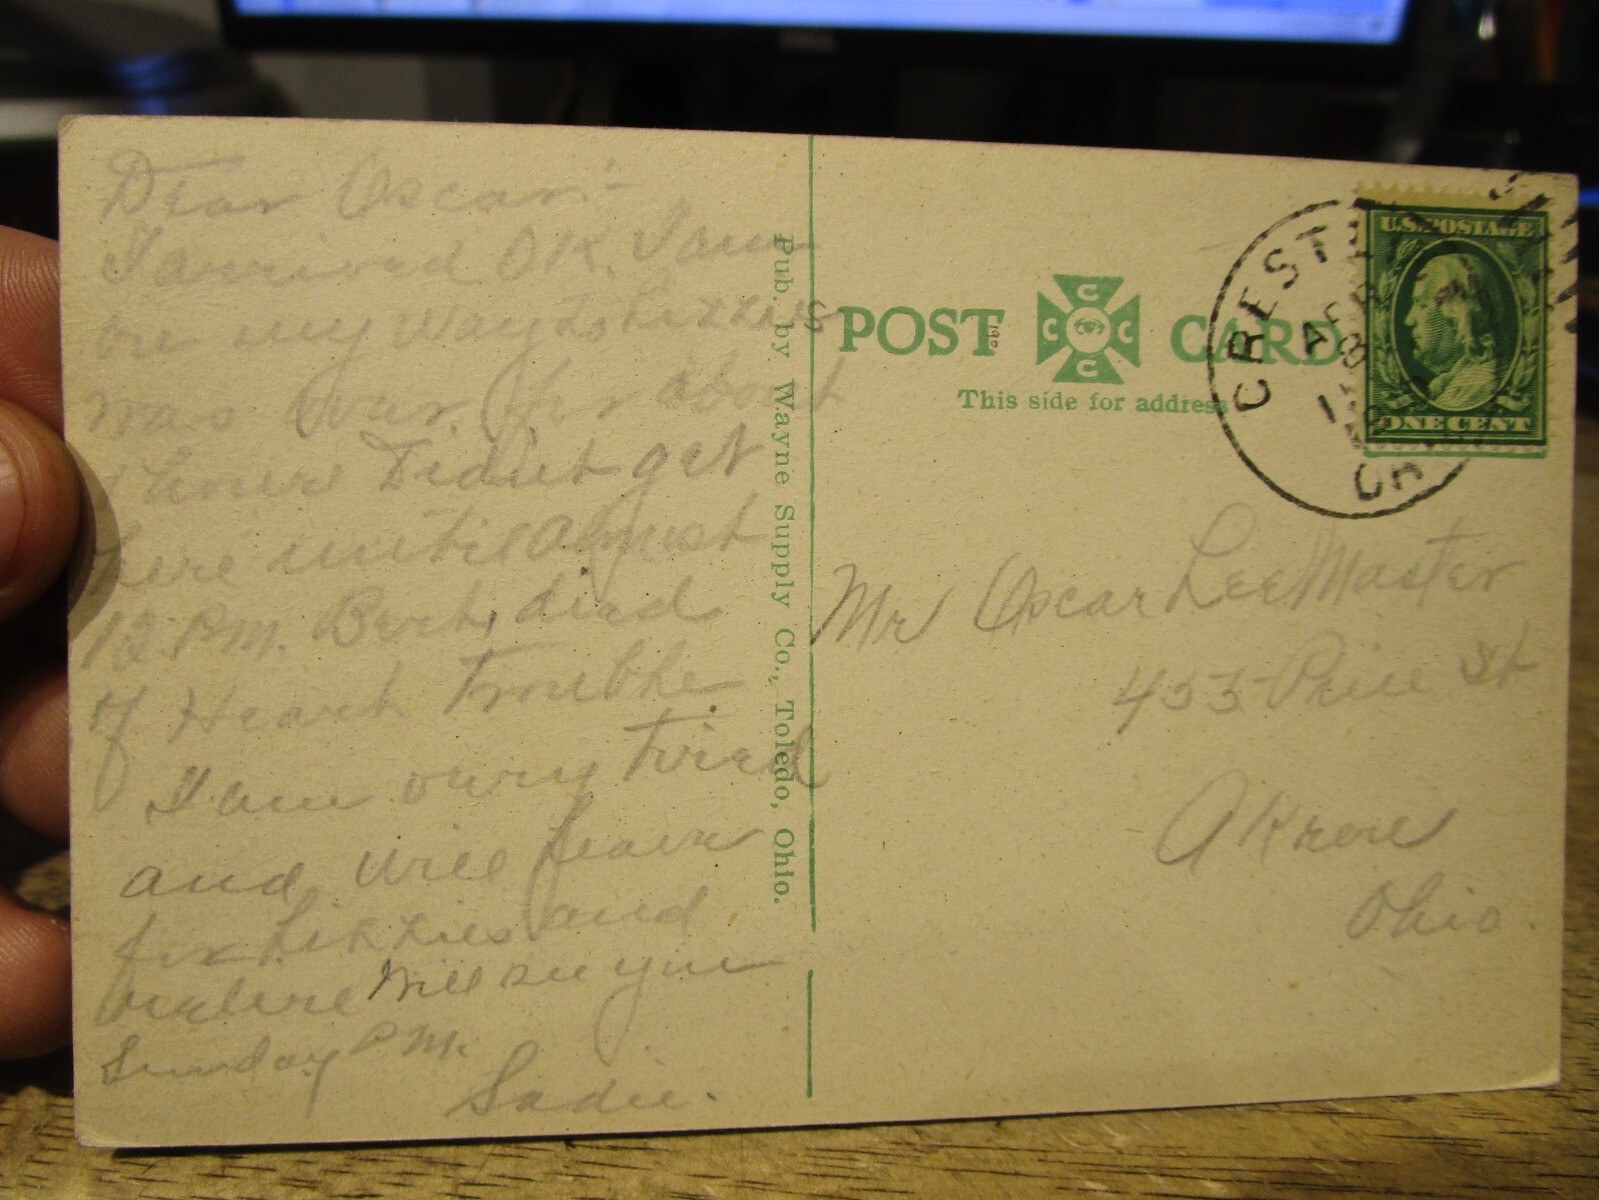 Dear Oscar:-
I arrived OK. I am
on my way to Lizzies
was over for about
hour Didnt get
here until almost
12 PM. Bert, died
of Heart Trouble
I am very tired
and will leave
for Lizzies and
will see you
Sunday PM.
Sadie.
Pub. by Wayne Supply Co., Toledo, Ohio.
POST CARD
C C C C
This side for address
U.S. POSTAGE
ONE CENT
CREST
Mr Oscar Lee Master
455 Price St
Akron
Ohio.